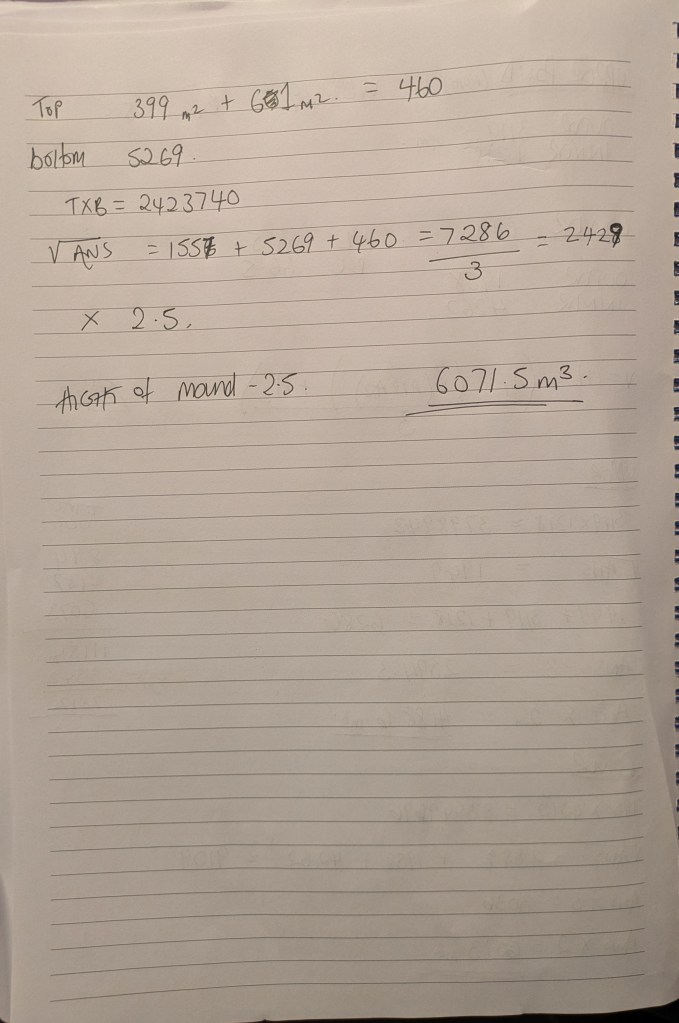 Top 399 m² + 61 m². = 460
bottom 5269.
TXB = 2423740
√ANS = 1557 + 5269 + 460 = 7286 / 3 = 2429
× 2.5.
of mound - 2.5. 6071.5 m³.